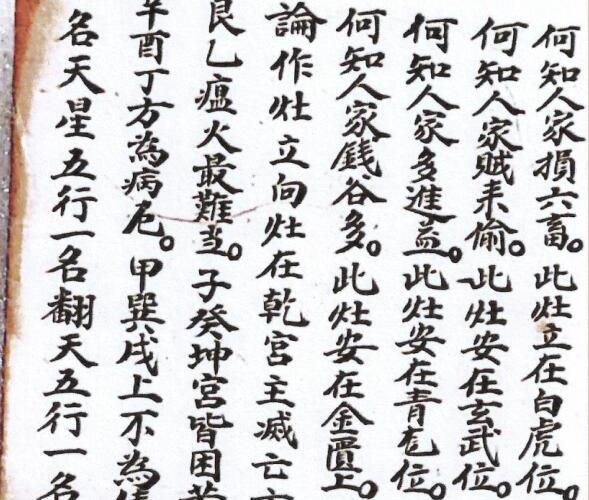 何知人家損六畜。此灶立在白虎位。
何知人家賊来偷。此灶安在玄武位。
何知人家多進益。此灶安在青龙位。
何知人家錢谷多。此灶安在金匱上。
論作灶立向灶在乾宮主滅亡
艮乙瘟火最難当。子癸坤宮皆困
辛酉丁方為病厄。甲巽戌上不為
名天星五行一名翻天五行一名